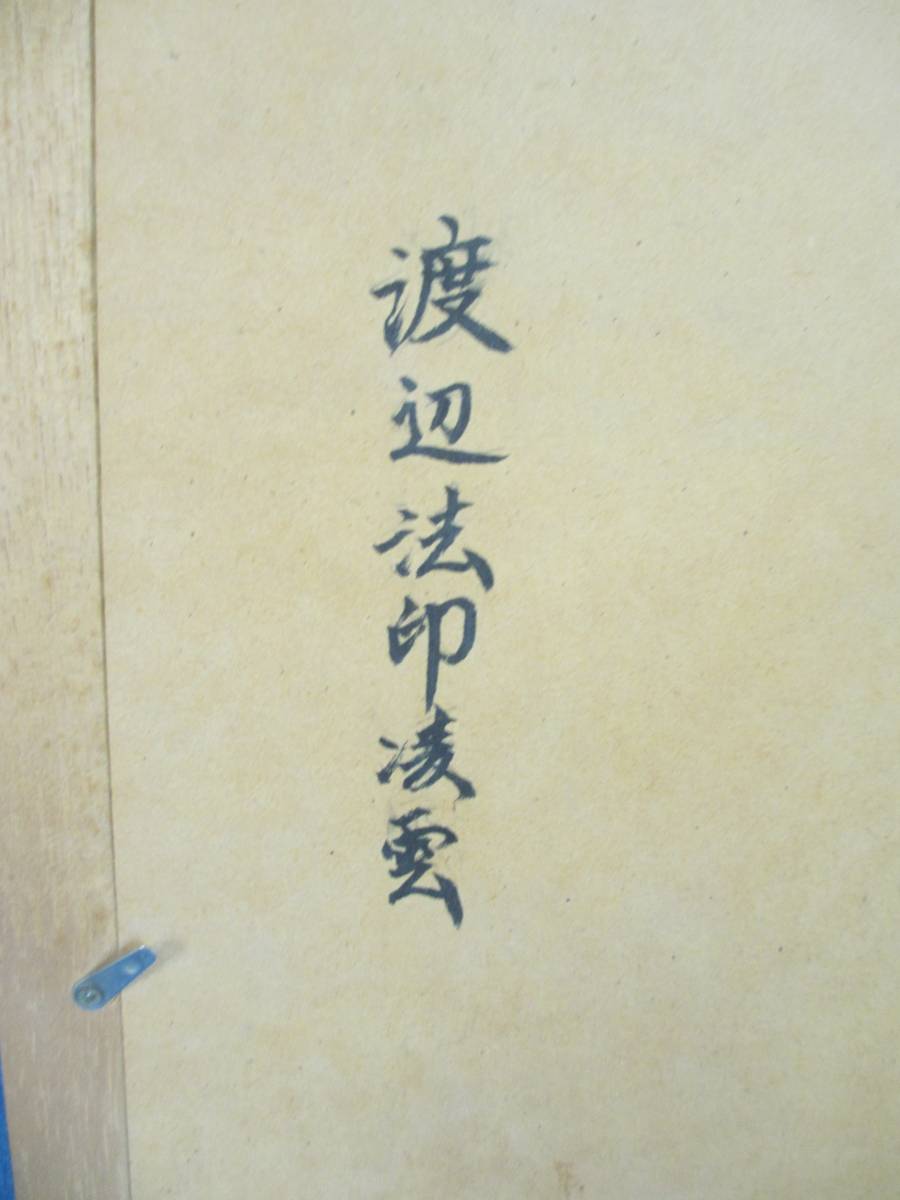 渡辺法印凌雲